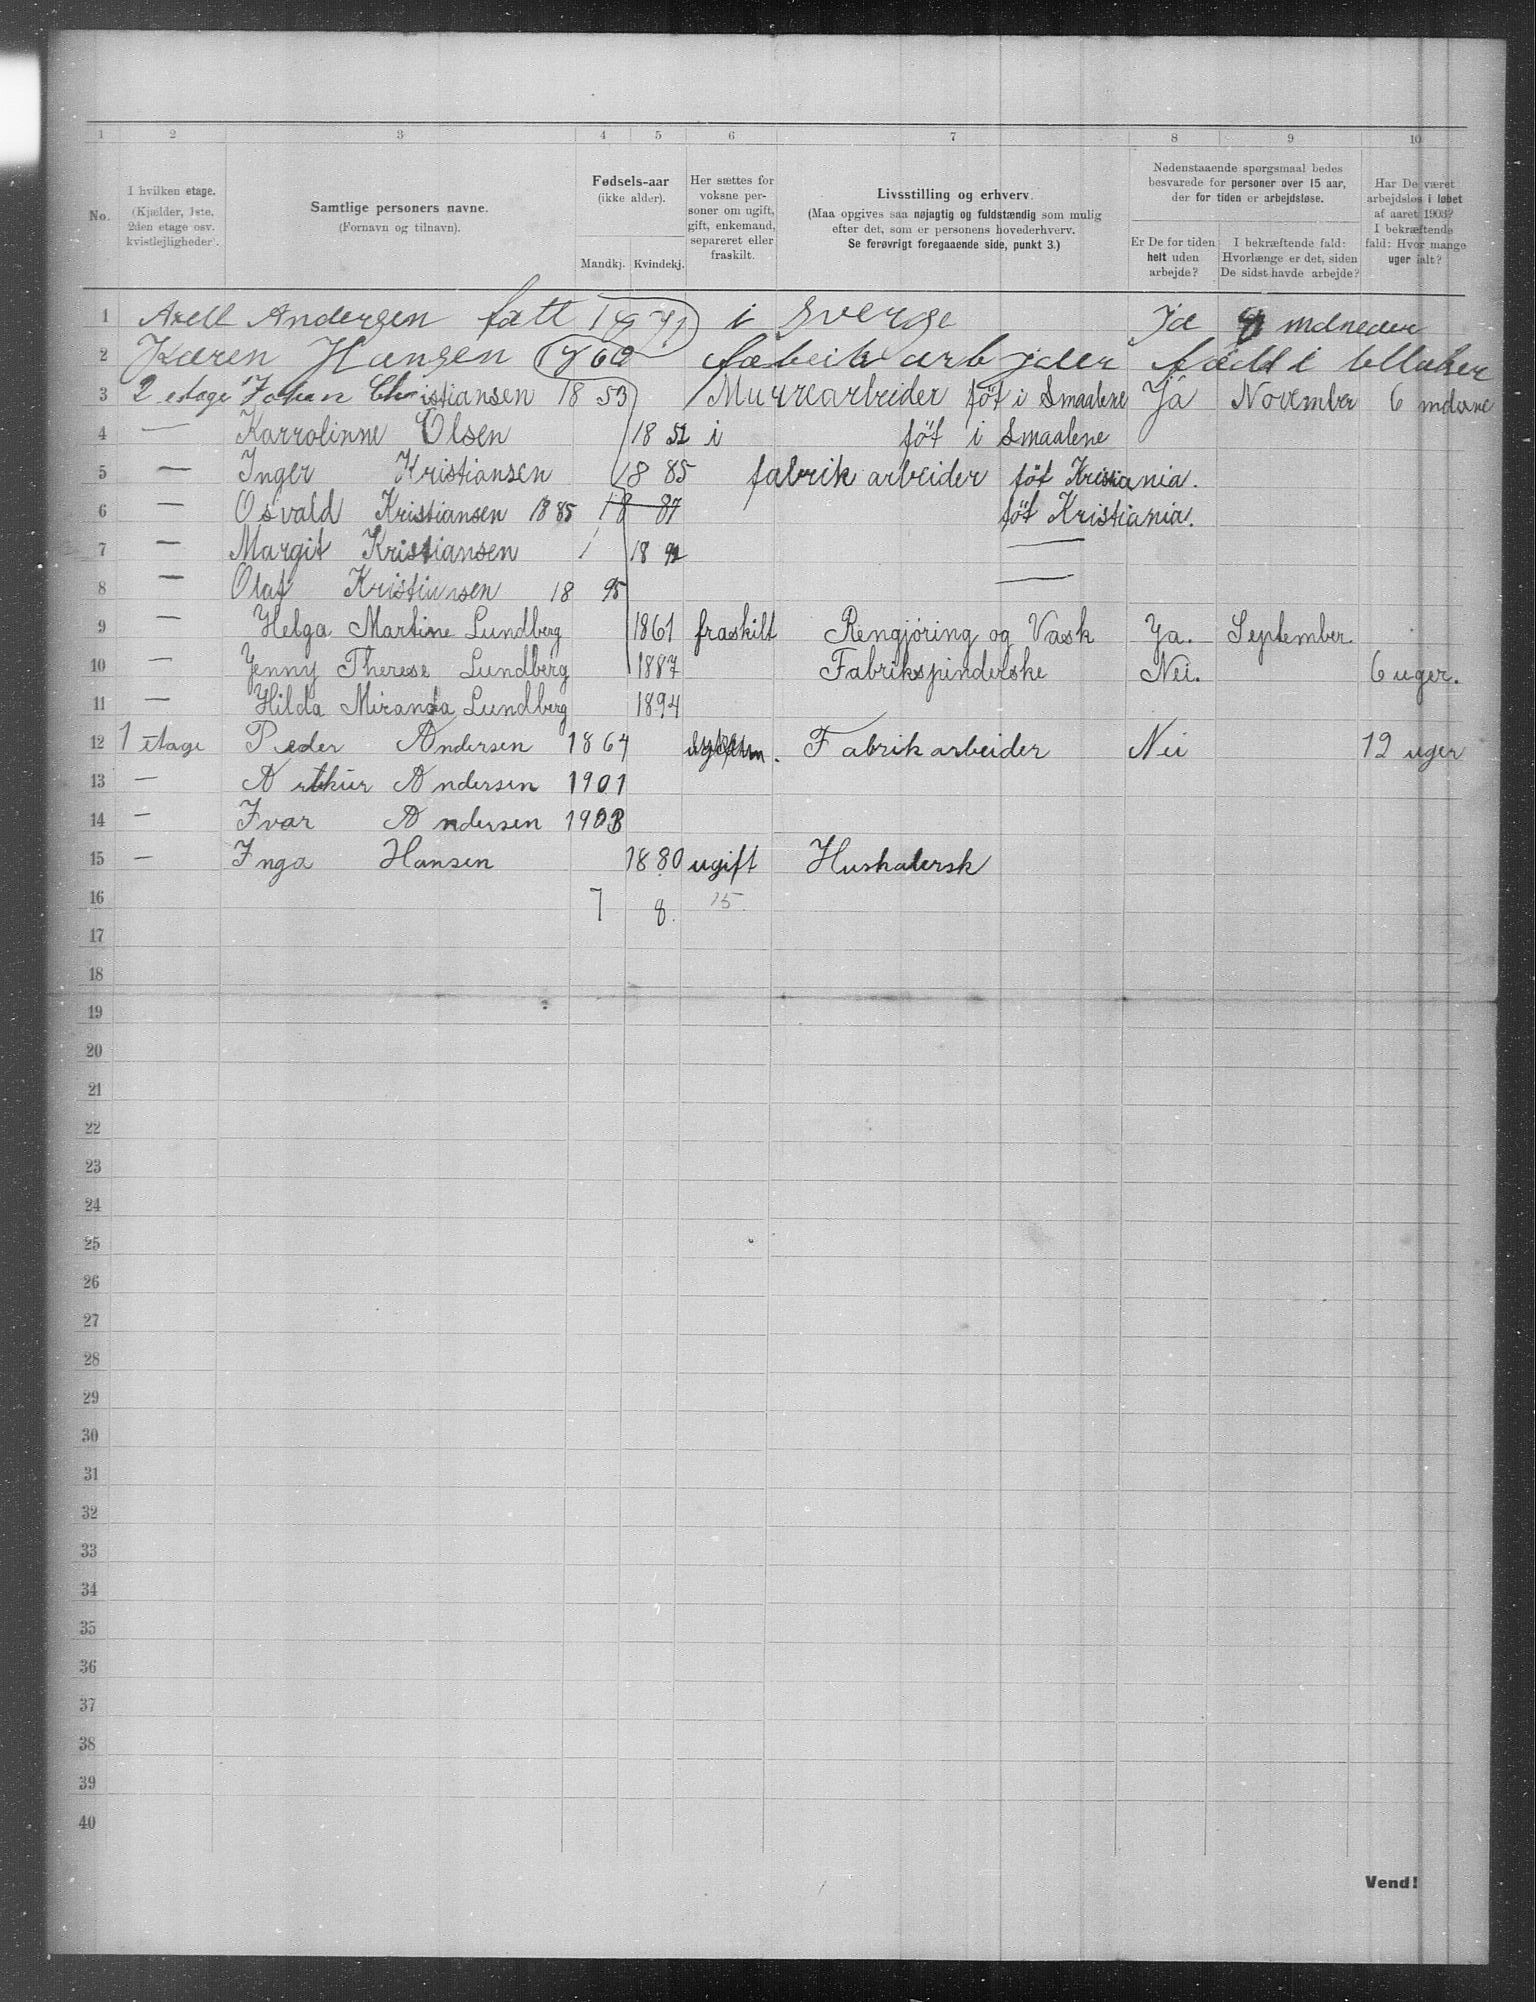 1 2 3 4 5 6 7 8 9 10
No.
I hvilken etage.
(Kjælder, 1ste,
2den etage osv.
kvistlejligheder).
Samtlige personers navne.
(Fornavn og tilnavn).
Fødsels-aar
(ikke alder).
Mandkj. Kvindekj.
Her sættes for
voksne per-
soner om ugift,
gift, enkemand,
separeret eller
fraskilt.
Livsstilling og erhverv.
(Maa opgives saa nøjagtig og fuldstændig som mulig
efter det, som er personens hovederhverv.
Se førøvrigt foregaaende side, punkt 3.)
Nedenstaaende spørgsmaal bedes
besvarede for personer over 15 aar,
der for tiden er arbejdsløse.
Er De for tiden
helt uden
arbejde?
I bekræftende fald:
Hvorlænge er det, siden
De sidst havde arbejde?
Har De været
arbejdsløs i løbet
af aaret 1903?
I bekræftende
fald: Hvor mange
uger ialt?
1 Axell Andersen fätt i Sverge Ja mdneder
2 Karen Hansen 1860 fabrik arbejder födt i Ullaker
3 2 etage Johan Christiansen 18 53 Murrearbeider föt i Smaalene Ja November 6 mdene
4 — Karrolinne Olsen 18 52 i föt i Smaalene
5 — Inger Kristiansen 18 85 fabrik arbeider föt Kristiania.
6 — Osvald Kristiansen 18 85 18 87 föt Kristiania.
7 — Margit Kristiansen 18 92 —
8 — Olaf Kristiansen 18 95 —
9 — Helga Martine Lundberg 1861 fraskilt Rengjøring og Vask Ja. September.
10 — Jenny Therese Lundberg 1887 Fabrikspinderske Nei. 6 uger.
11 — Hilda Miranda Lundberg 1894
12 1 etage Peder Andersen 1864 Fabrikarbeider Nei 12 uger
13 — Arthur Andersen 1901
14 — Ivar Andersen 1903
15 — Inga Hansen 1880 ugift Hushalersk
16 7 8. 15.
17
18
19
20
21
22
23
24
25
26
27
28
29
30
31
32
33
34
35
36
37
38
39
40
Vend!